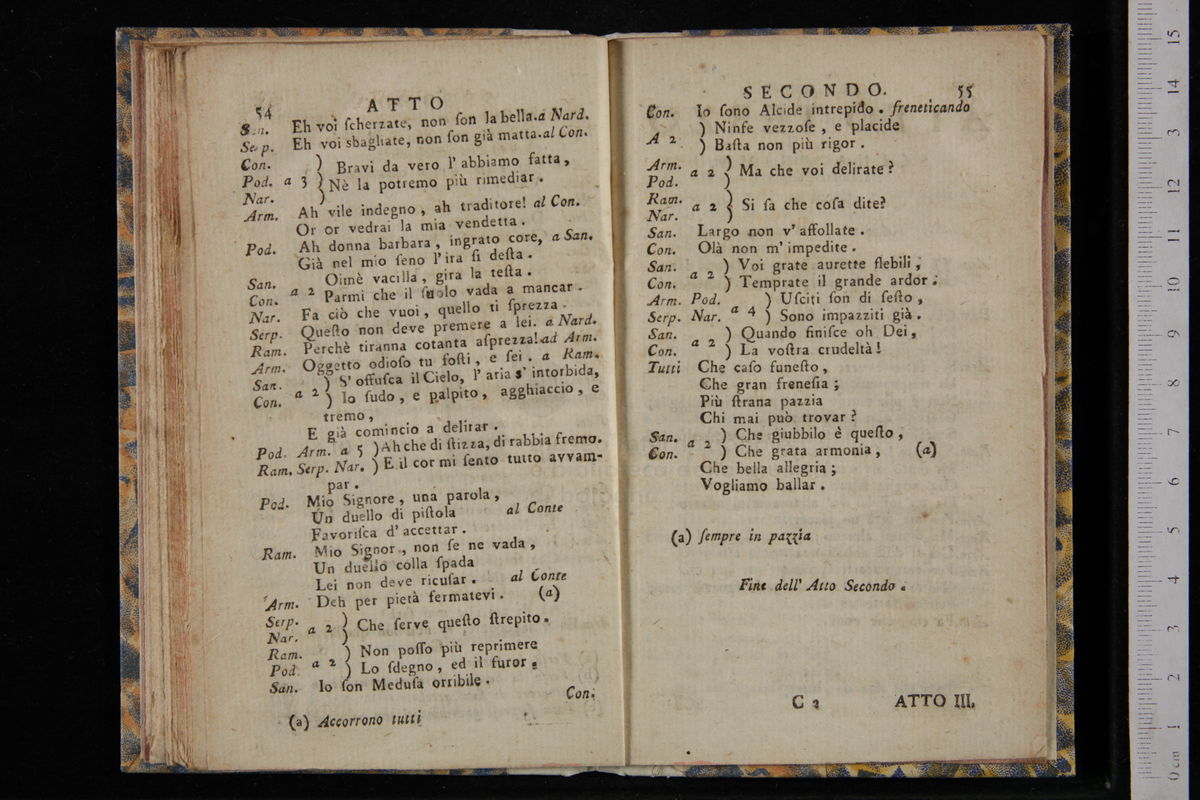 54 ATTO
San. Eh voi ſcherzate, non ſon la bella. a Nard.
Serp. Eh voi sbagliate, non ſon già matta. al Con.
Con. ) Bravi da vero l' abbiamo fatta,
Pod. a 3 ) Nè la potremo più rimediar.
Nar. )
Arm. Ah vile indegno, ah traditore! al Con.
Or or vedrai la mia vendetta.
Pod. Ah donna barbara, ingrato core, a San.
Già nel mio ſeno l' ira ſi deſta.
San. Oimè vacilla, gira la teſta.
Con. a 2 Parmi che il ſuolo vada a mancar.
Nar. Fa ciò che vuoi, quello ti ſprezza.
Serp. Queſto non deve premere a lei. a Nard.
Ram. Perchè tiranna cotanta aſprezza! ad Arm.
Arm. Oggetto odioſo tu foſti, e ſei. a Ram.
San. ) S' offuſca il Cielo, l' aria s' intorbida,
Con. a 2 ) Io ſudo, e palpito, agghiaccio, e
tremo,
E già comincio a delirar.
Pod. Arm. a 5 ) Ah che di ſtizza, di rabbia fremo.
Ram. Serp. Nar. ) E il cor mi ſento tutto avvam-
par.
Pod. Mio Signore, una parola,
Un duello di piſtola al Conte
Favoriſca d' accettar.
Ram. Mio Signor, non ſe ne vada,
Un duello colla ſpada
Lei non deve ricuſar. al Conte
Arm. Deh per pietà fermatevi. (a)
Serp. a 2 ) Che ſerve queſto ſtrepito.
Nar. )
Ram. ) Non poſſo più reprimere
Pod. a 2 ) Lo ſdegno, ed il furor.
San. Io ſon Meduſa orribile.
Con.
(a) Accorrono tutti
SECONDO. 55
Con. Io ſono Alcide intrepido. freneticando
A 2 ) Ninfe vezzoſe, e placide
) Baſta non più rigor.
Arm. a 2 ) Ma che voi delirate?
Pod. )
Ram. a 2 ) Si ſa che coſa dite?
Nar. )
San. Largo non v' affollate.
Con. Olà non m' impedite.
San. a 2 ) Voi grate aurette flebili,
Con. ) Temprate il grande ardor.
Arm. Pod. a 4 ) Uſciti ſon di ſeſto,
Serp. Nar. ) Sono impazziti già.
San. a 2 ) Quando finiſce oh Dei,
Con. ) La voſtra crudeltà!
Tutti Che caſo funeſto,
Che gran freneſia;
Più ſtrana pazzia
Chi mai può trovar?
San. a 2 ) Che giubbilo è queſto,
Con. ) Che grata armonia, (a)
Che bella allegria;
Vogliamo ballar.
(a) ſempre in pazzia
Fine dell' Atto Secondo.
C 2 ATTO III.
15
14
13
12
11
10
9
8
7
6
5
4
3
2
1
0 cm